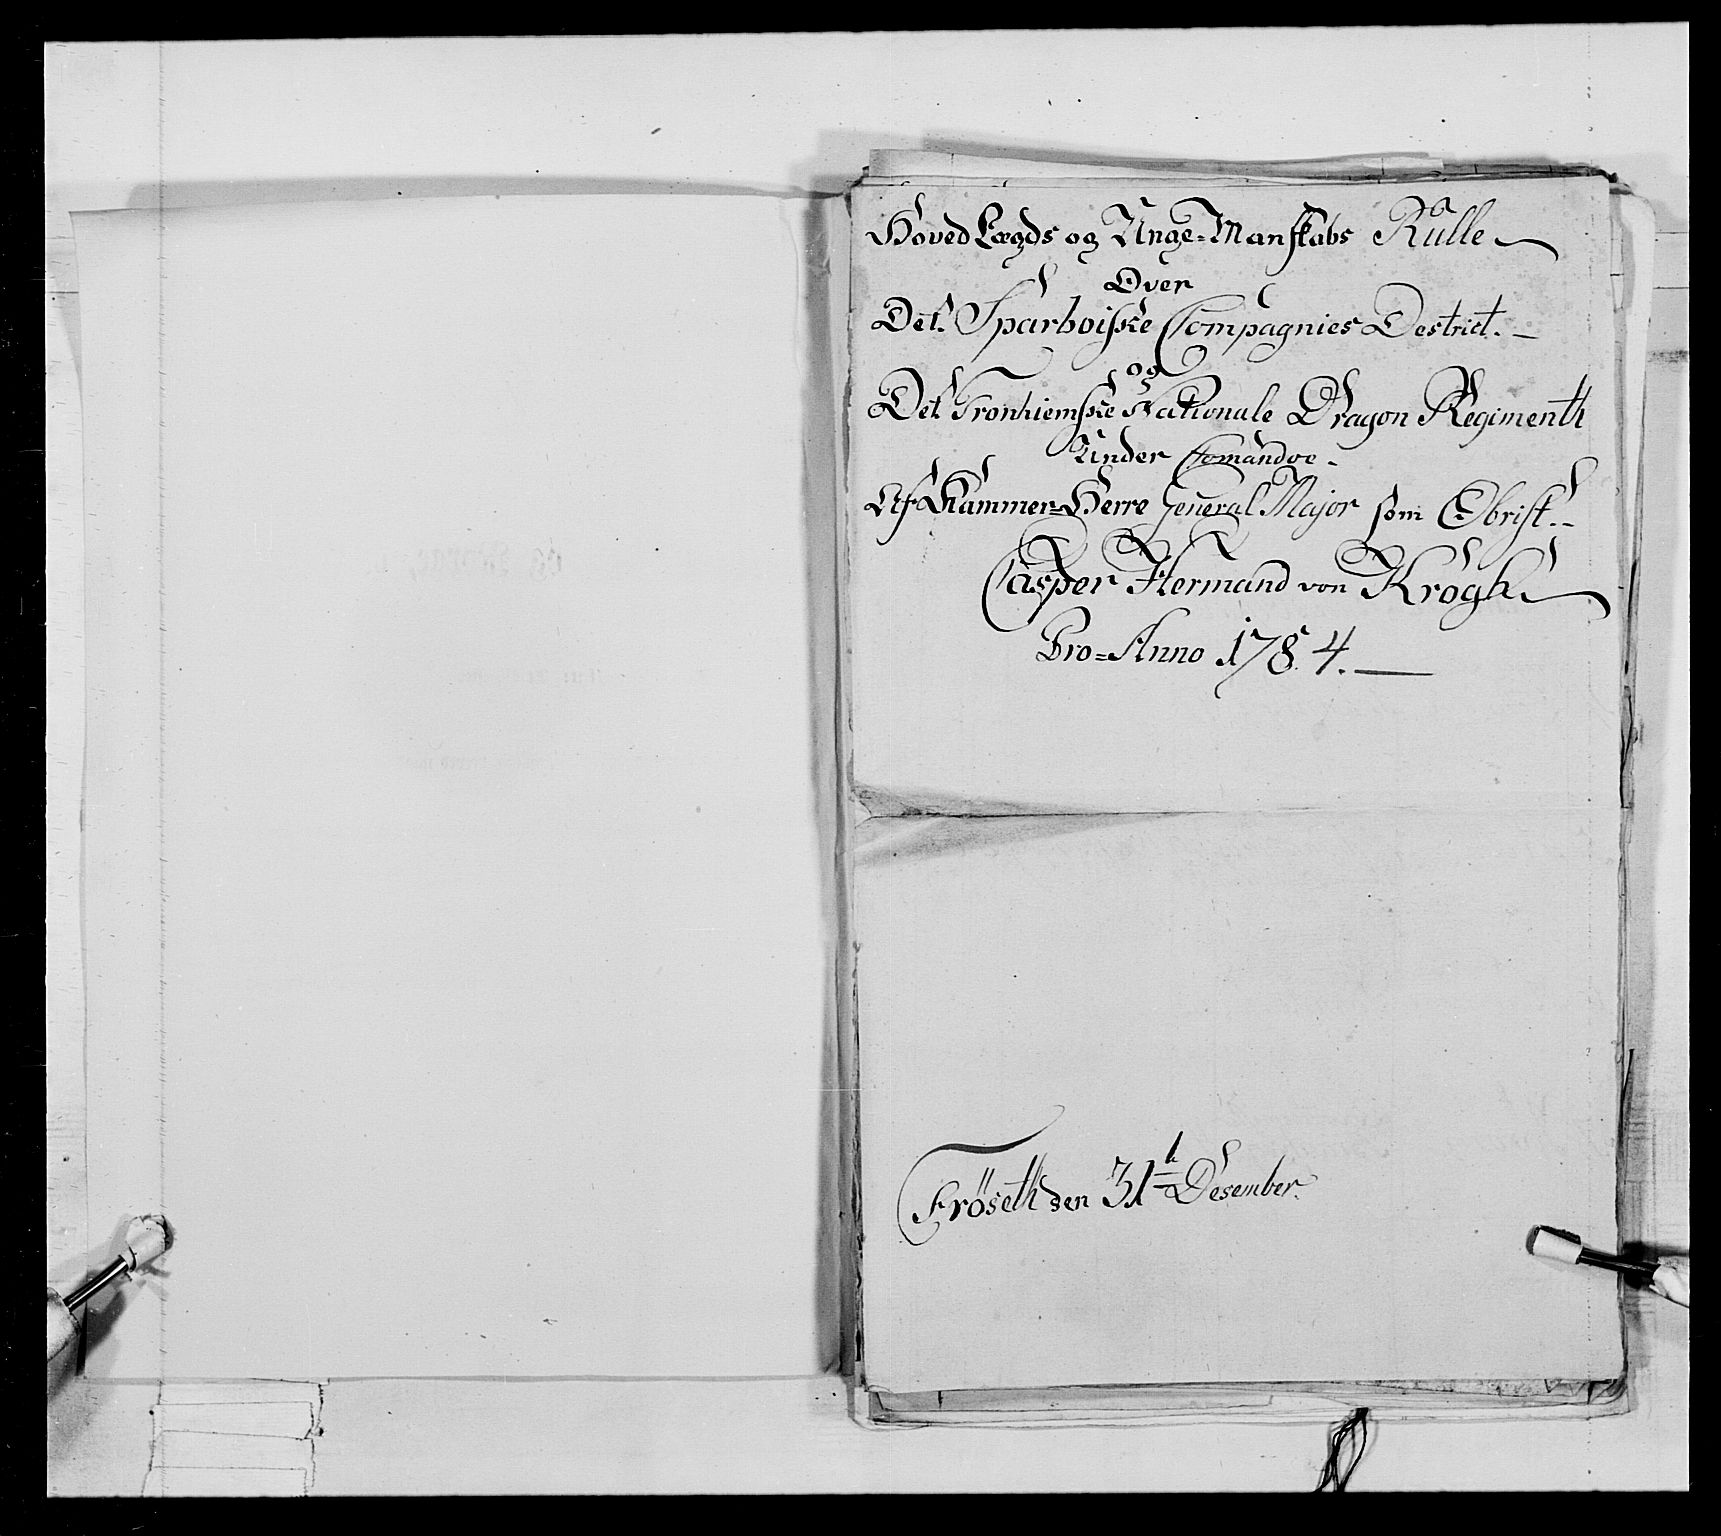 Hoved Lægds og Unge=Manskabs Rulle
Over
Det Sparboiske Compagnies Destrict.
og
Det Tronhiemske Nationale Dragon Regimenth
Under Comandoe
Af Kammer=Herre General Major som Obrist
Casper Hermand von Krogh
Pro=Anno 1784.
Fröseth den 31te Desember.